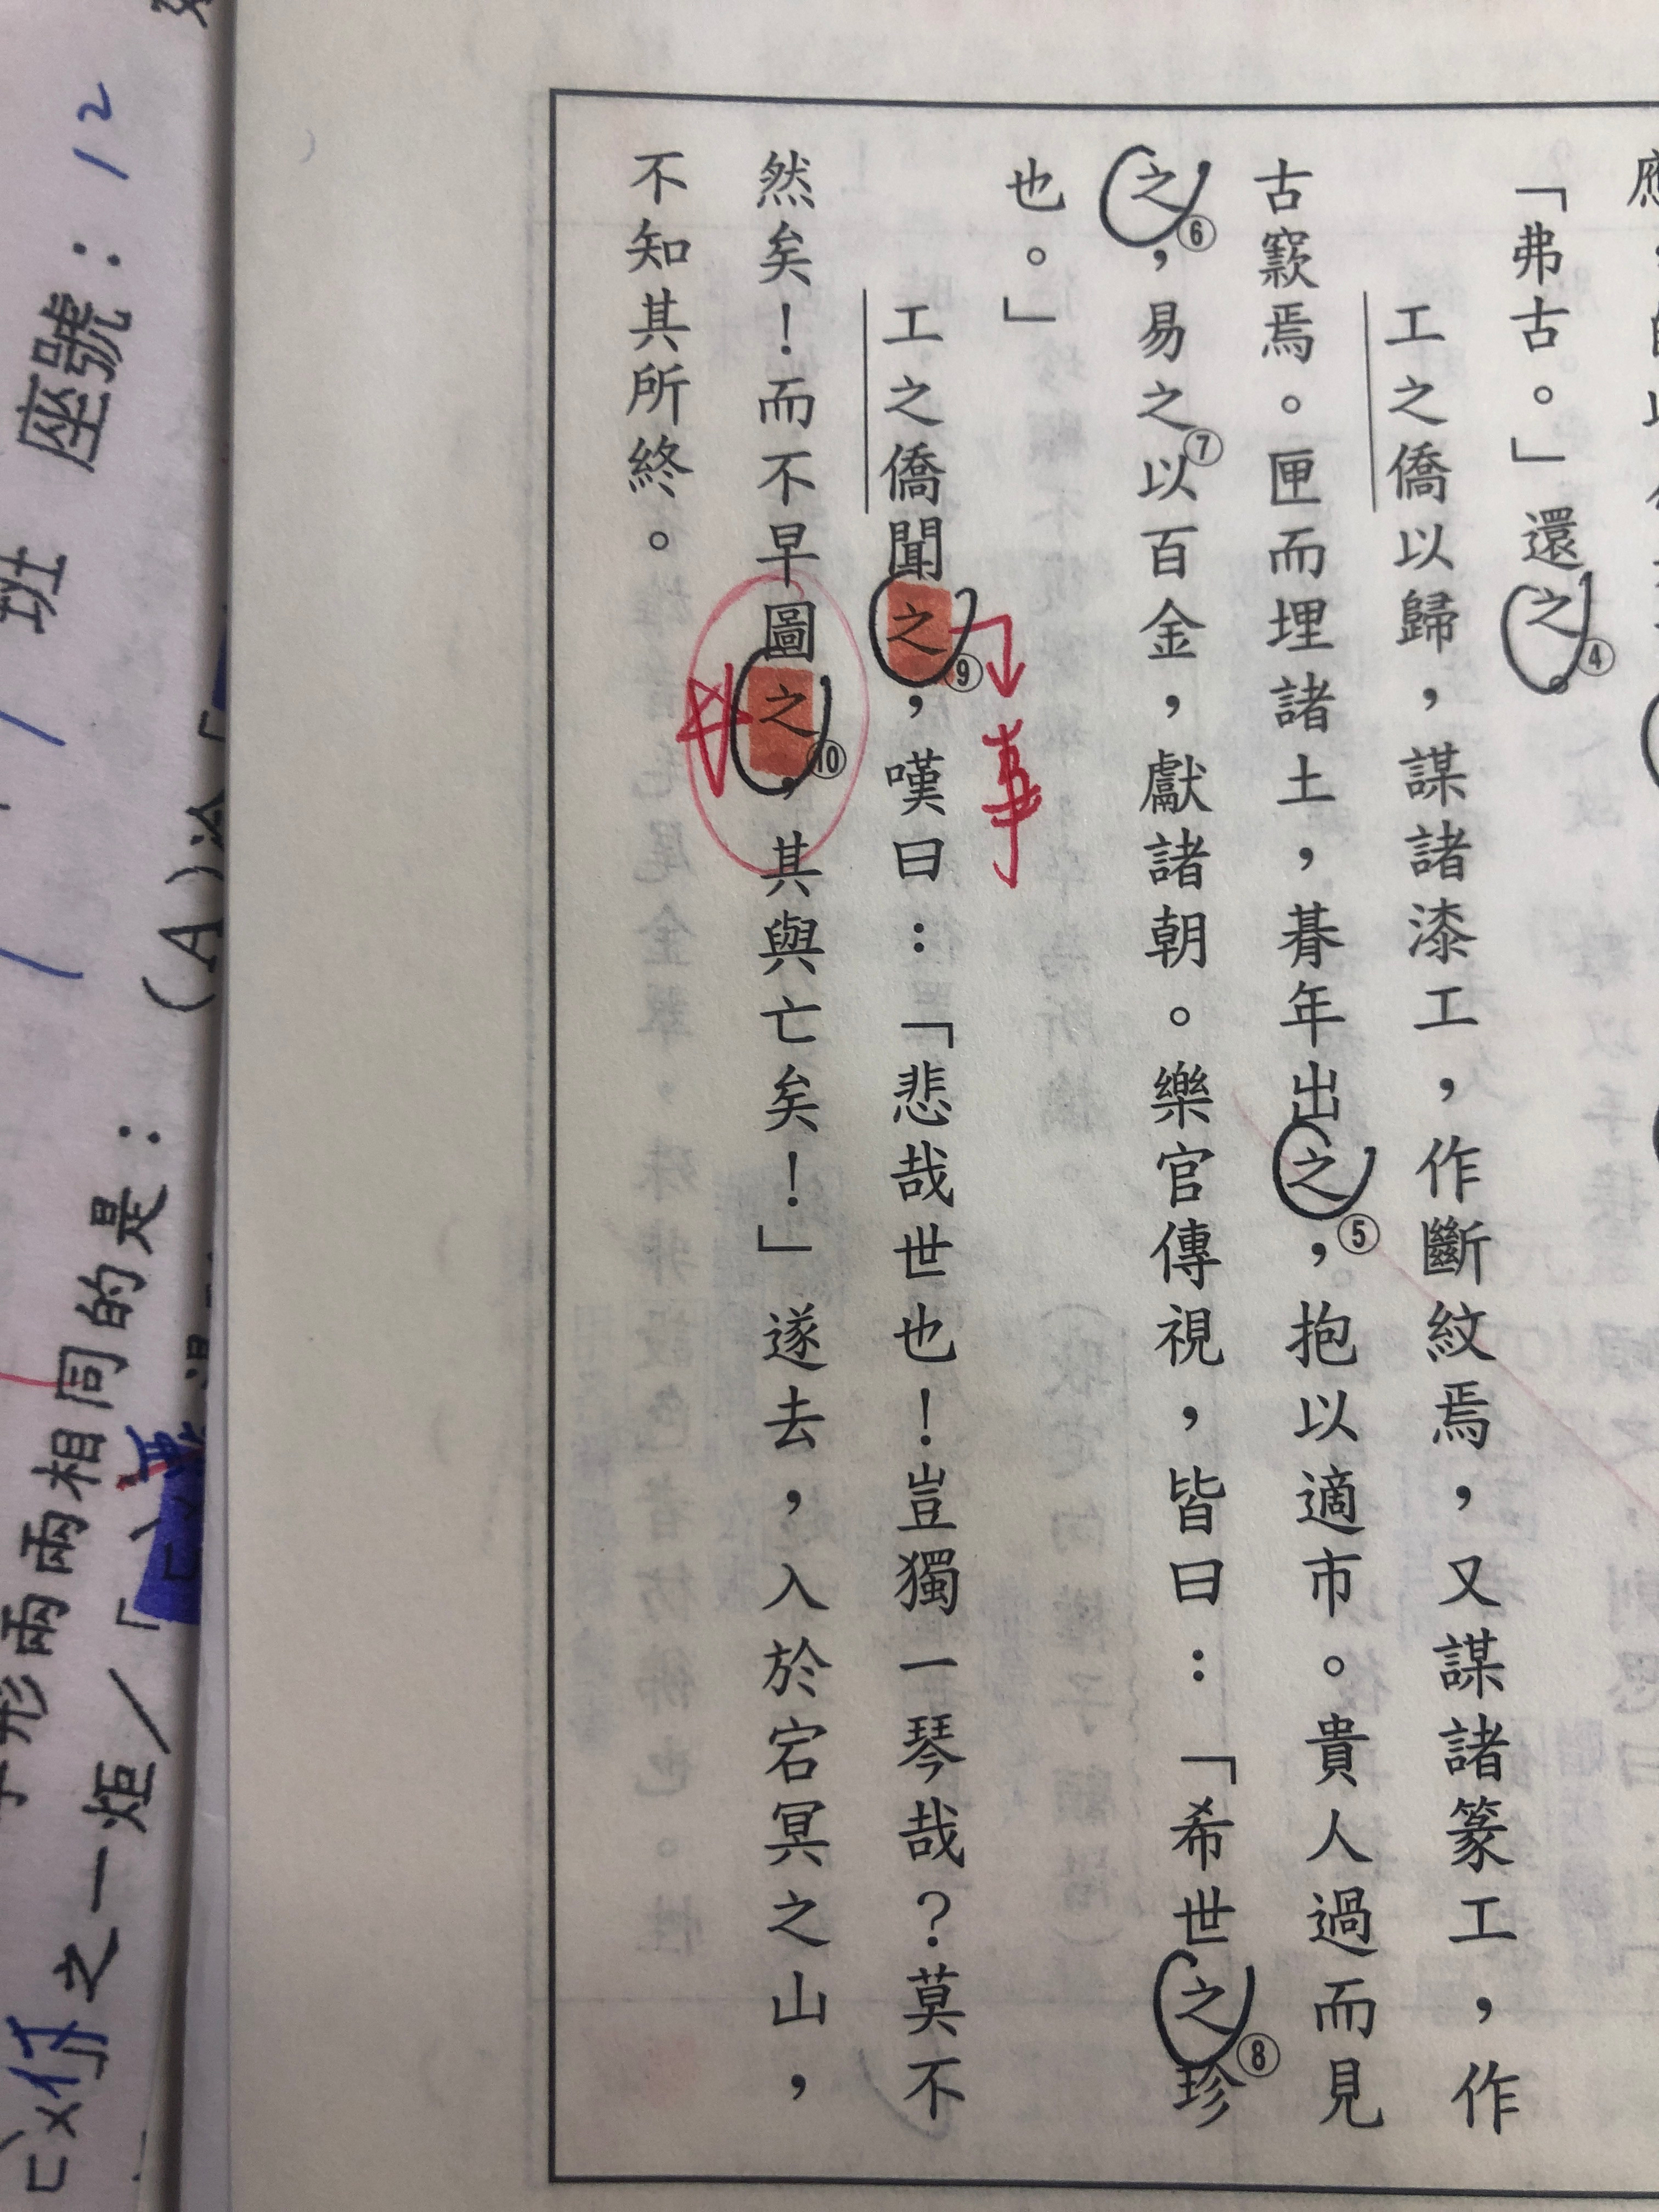 「弗古。」還之④。
工之僑以歸，謀諸漆工，作斷紋焉，又謀諸篆工，作
古窾焉。匣而埋諸土，朞年出之⑤，抱以適市。貴人過而見
之⑥，易之⑦以百金，獻諸朝。樂官傳視，皆曰：「希世之⑧珍
也。」
事
工之僑聞之⑨，嘆曰：「悲哉世也！豈獨一琴哉？莫不
然矣！而不早圖之⑩，其與亡矣！」遂去，入於宕冥之山，
不知其所終。
班 座號：12
形兩兩相同的是：
(A)
之一炬／「